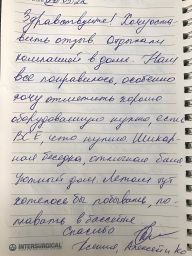 Здравствуйте! Хочу оста-
вить отзыв. Отдыхали
компанией в доме. Нам
всё понравилось, особенно
хочу отметить хорошо
оборудованную кухню, есть
ВСЁ, что нужно. Шикар-
ная беседка, отличная баня
Уютный дом. Летом тут
хотелось бы побывать, по-
плавать в бассейне
Спасибо
Ксения, Алексей и Ко
INTERSURGICAL